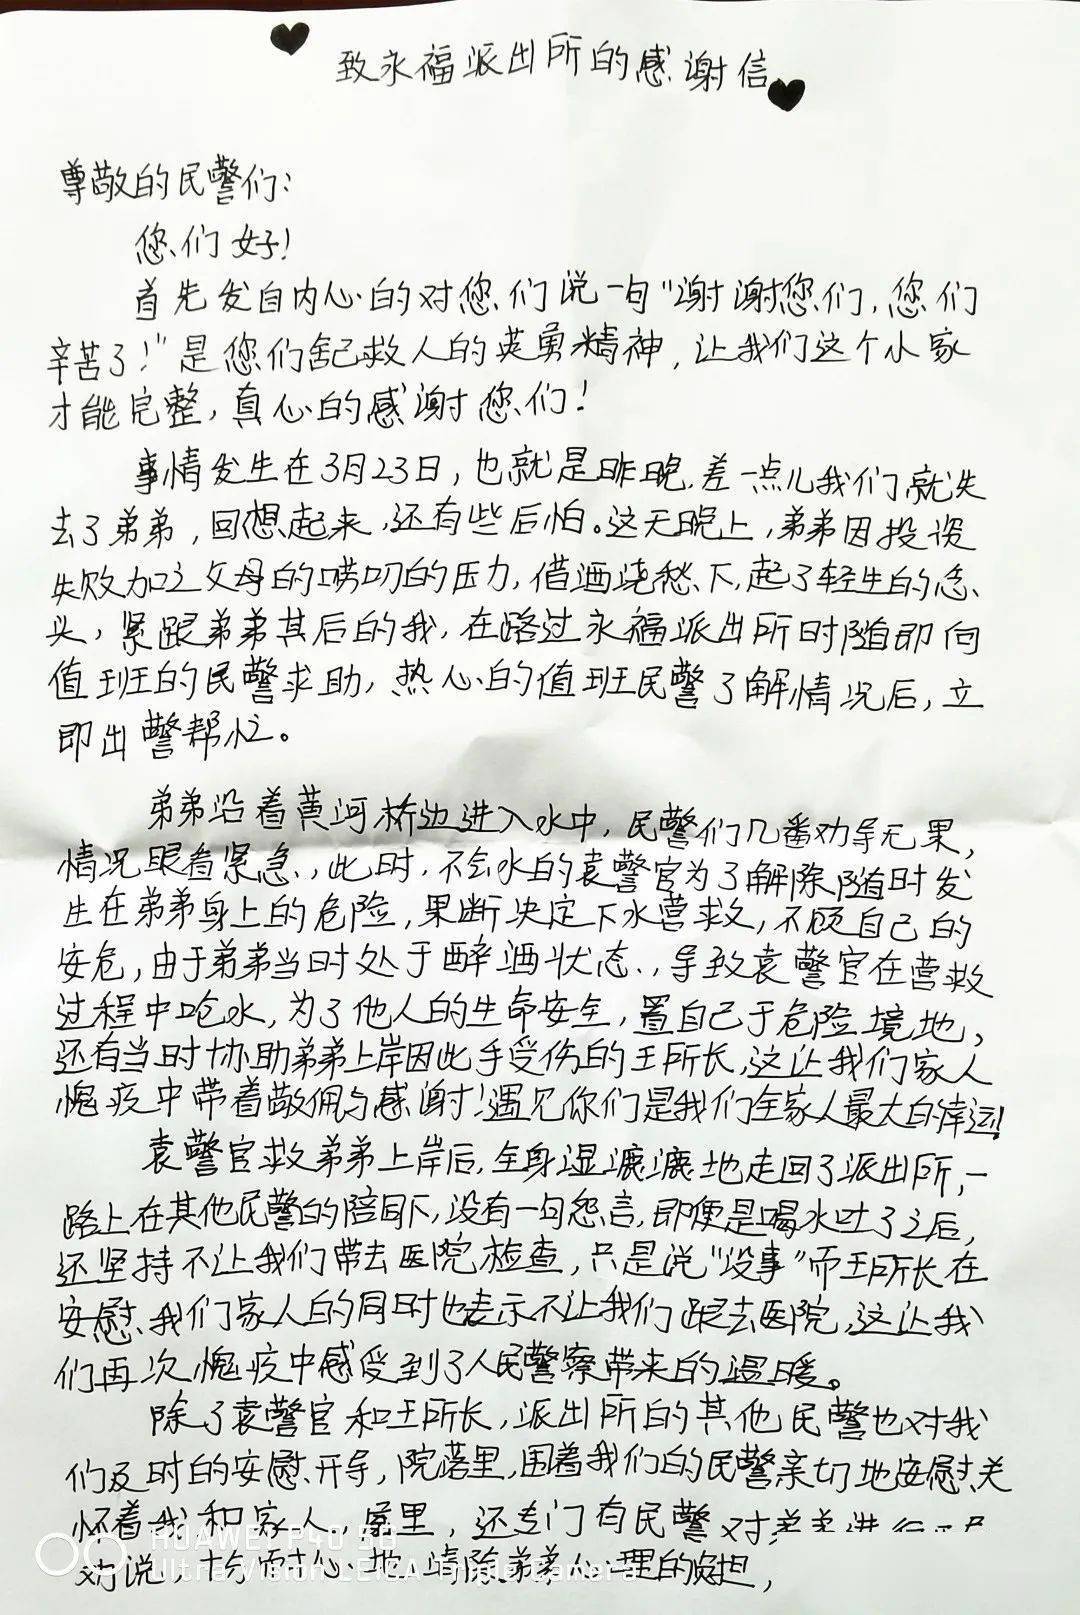 致永福派出所的感谢信
尊敬的民警们：
您们好！
首先发自内心的对您们说一句“谢谢您们，您们
辛苦了！”是您们舍己救人的英勇精神，让我们这个小家
才能完整，真心的感谢您们！
事情发生在3月23日，也就是昨晚，差一点儿我们就失
去了弟弟，回想起来，还有些后怕。这天晚上，弟弟因投资
失败加之父母的唠叨的压力，借酒浇愁下，起了轻生的念
头，紧跟弟弟其后的我，在路过永福派出所时随即向
值班的民警求助，热心的值班民警了解情况后，立
即出警帮忙。
弟弟沿着黄河桥边进入水中，民警们几番劝导无果，
情况眼看紧急，此时，不会水的袁警官为了解除随时发
生在弟弟身上的危险，果断决定下水营救，不顾自己的
安危，由于弟弟当时处于醉酒状态，导致袁警官在营救
过程中呛水，为了他人的生命安全，置自己于危险境地，
还有当时协助弟弟上岸因此手受伤的王所长，这让我们家人
愧疚中带着敬佩与感谢！遇见你们是我们全家人最大的幸运！
袁警官救弟弟上岸后，全身湿漉漉地走回了派出所，一
路上在其他民警的陪同下，没有一句怨言，即便是喝水吐了之后，
还坚持不让我们带去医院检查，只是说“没事”而王所长在
安慰我们家人的同时也表示不让我们跟去医院，这让我
们再次愧疚中感受到了人民警察带来的温暖。
除了袁警官和王所长，派出所的其他民警也对我
们及时的安慰、开导，院落里，围着我们的民警亲切地安慰、关
怀着我和家人，屋里，还专门有民警对弟弟进行
劝说，十分耐心地清除弟弟心理的负担，
HUAWEI P40 5G
Ultra Vision LEICA Triple Camera